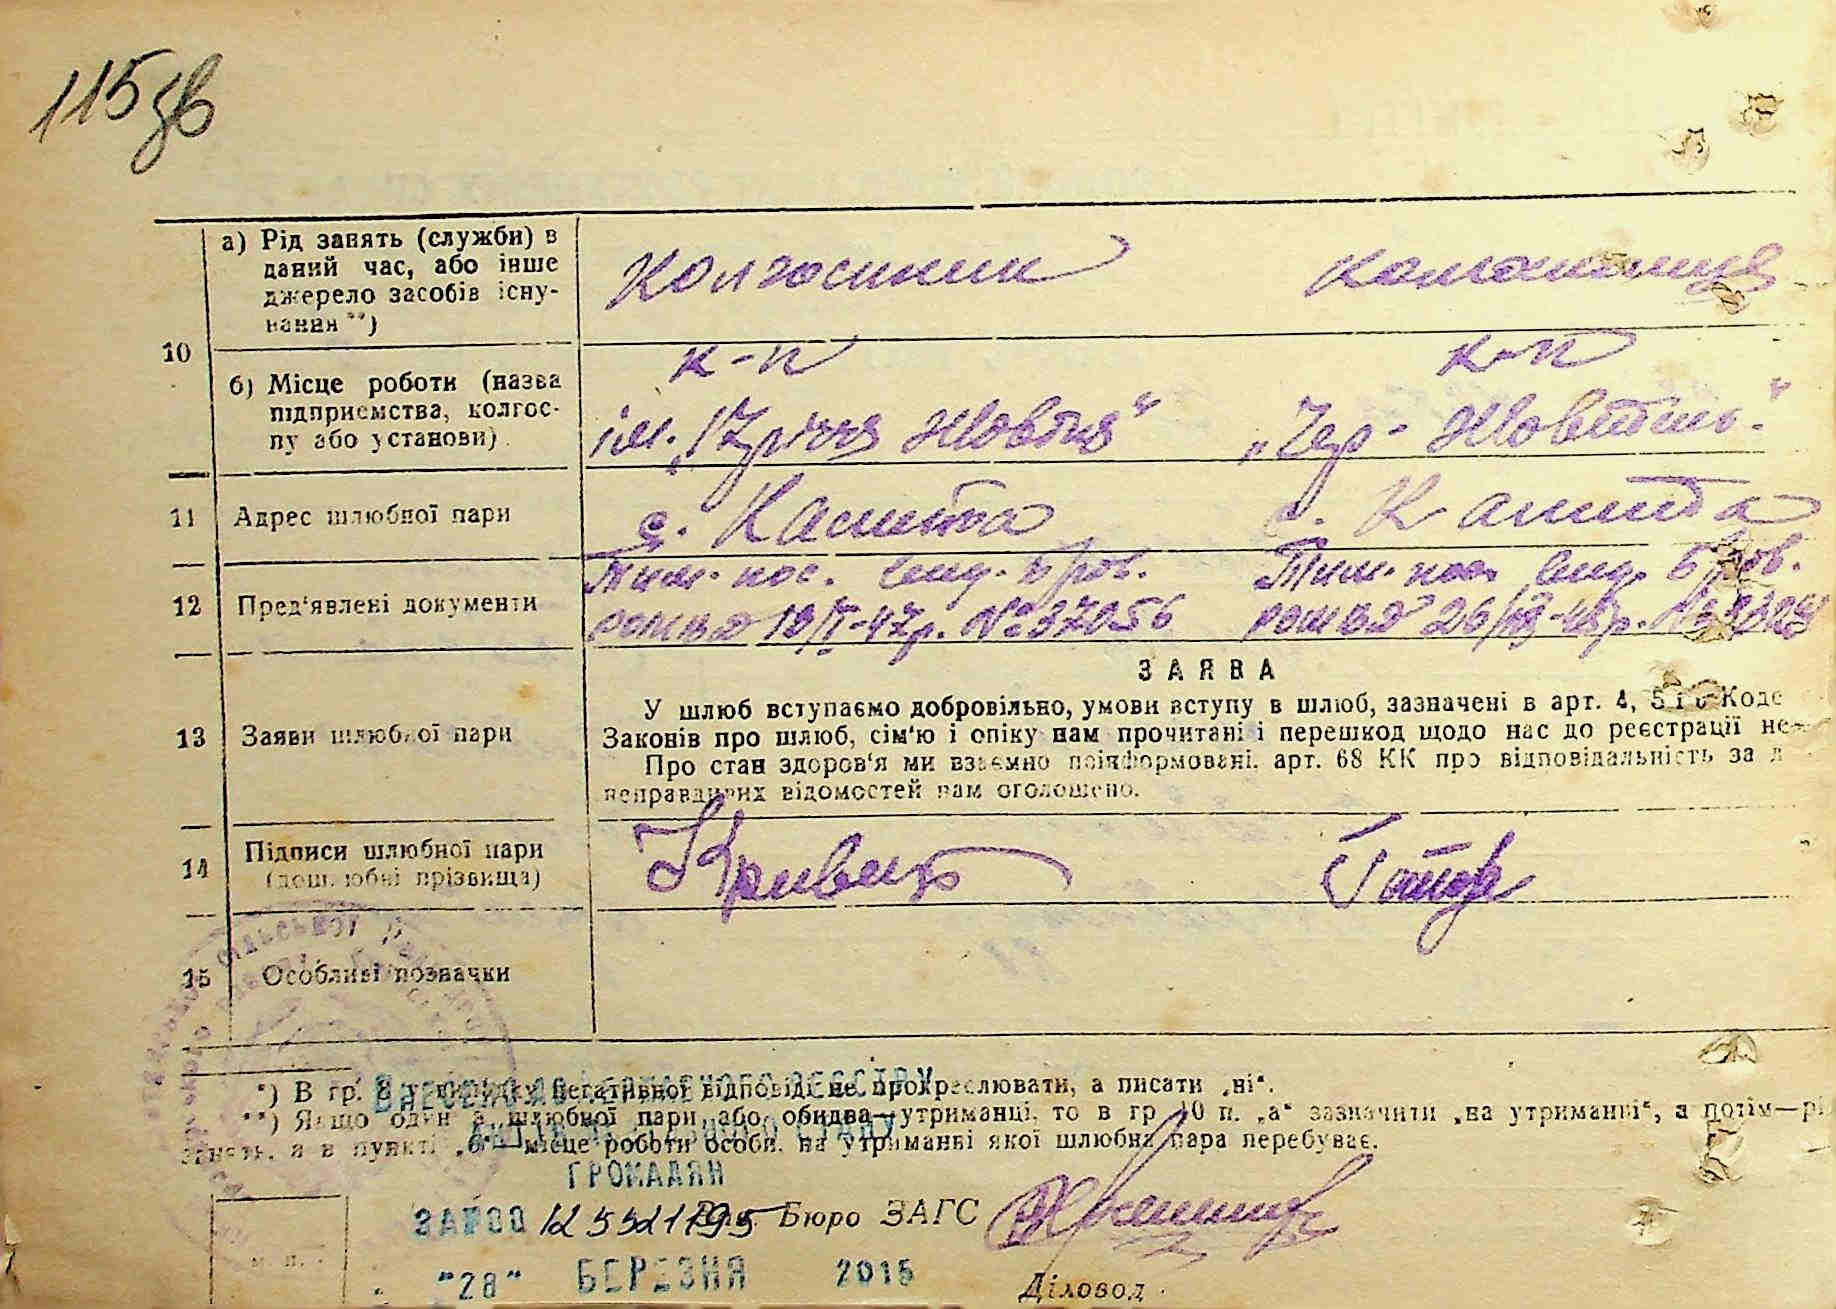 115зв
а) Рід занять (служби) в
даний час, або інше
джерело засобів існу-
вання **)
Колгоспник
колгоспниця
10
б) Місце роботи (назва
підприємства, колгос-
пу або установи)
к-п
к-п
ім. „17 річчя Жовтня“
„Чер. Жовтень.“
11
Адрес шлюбної пари
с.
с.
12
Пред'явлені документи
Тим. пос.
Тим. пос.
№ 37056
13
Заяви шлюбної пари
ЗАЯВА
У шлюб вступаємо добровільно, умови вступу в шлюб, зазначені в арт. 4, 5 і 6 Коде
Законів про шлюб, сім'ю і опіку нам прочитані і перешкод щодо нас до реєстрації не
Про стан здоров'я ми взаємно поінформовані, арт. 68 КК про відповідальність за д
неправдивих відомостей нам оголошено.
14
Підписи шлюбної пари
(дошлюбні прізвища)
Кривець
15
Особливі позначки
*) В гр. 8 у випадку негативної відповіді не прокреслювати, а писати „ні“.
**) Якщо один з шлюбної пари або обидва—утриманці, то в гр. 10 п. „а“ зазначити „на утриманні“, а потім—рі
занять, а в пункті „б“—місце роботи особи, на утриманні якої шлюбна пара перебуває.
ГРОМАДЯН
Бюро ЗАГС
м. п.
"28" БЕРЕЗНЯ 2015
Діловод